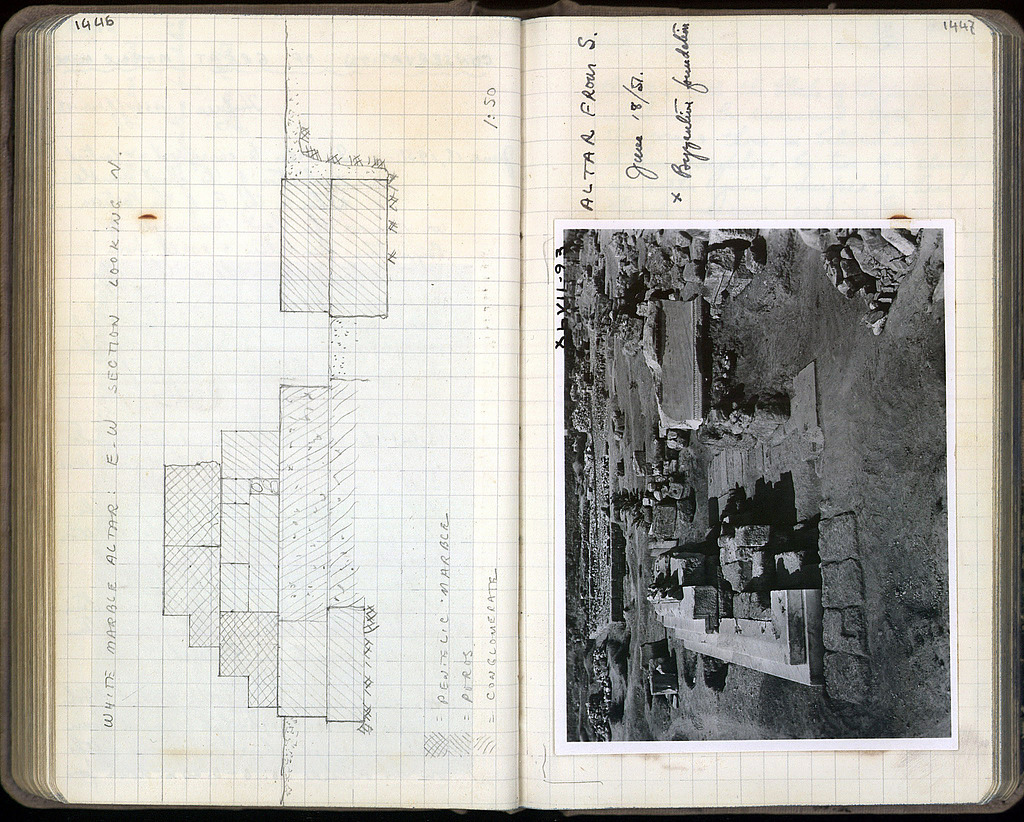 1446
WHITE MARBLE ALTAR: E-W SECTION LOOKING N.
1:50
= PENTELIC MARBLE
= POROS
= CONGLOMERATE
1447
ALTAR FROM S.
June 18/51.
x Byzantine foundation
XLVII-93